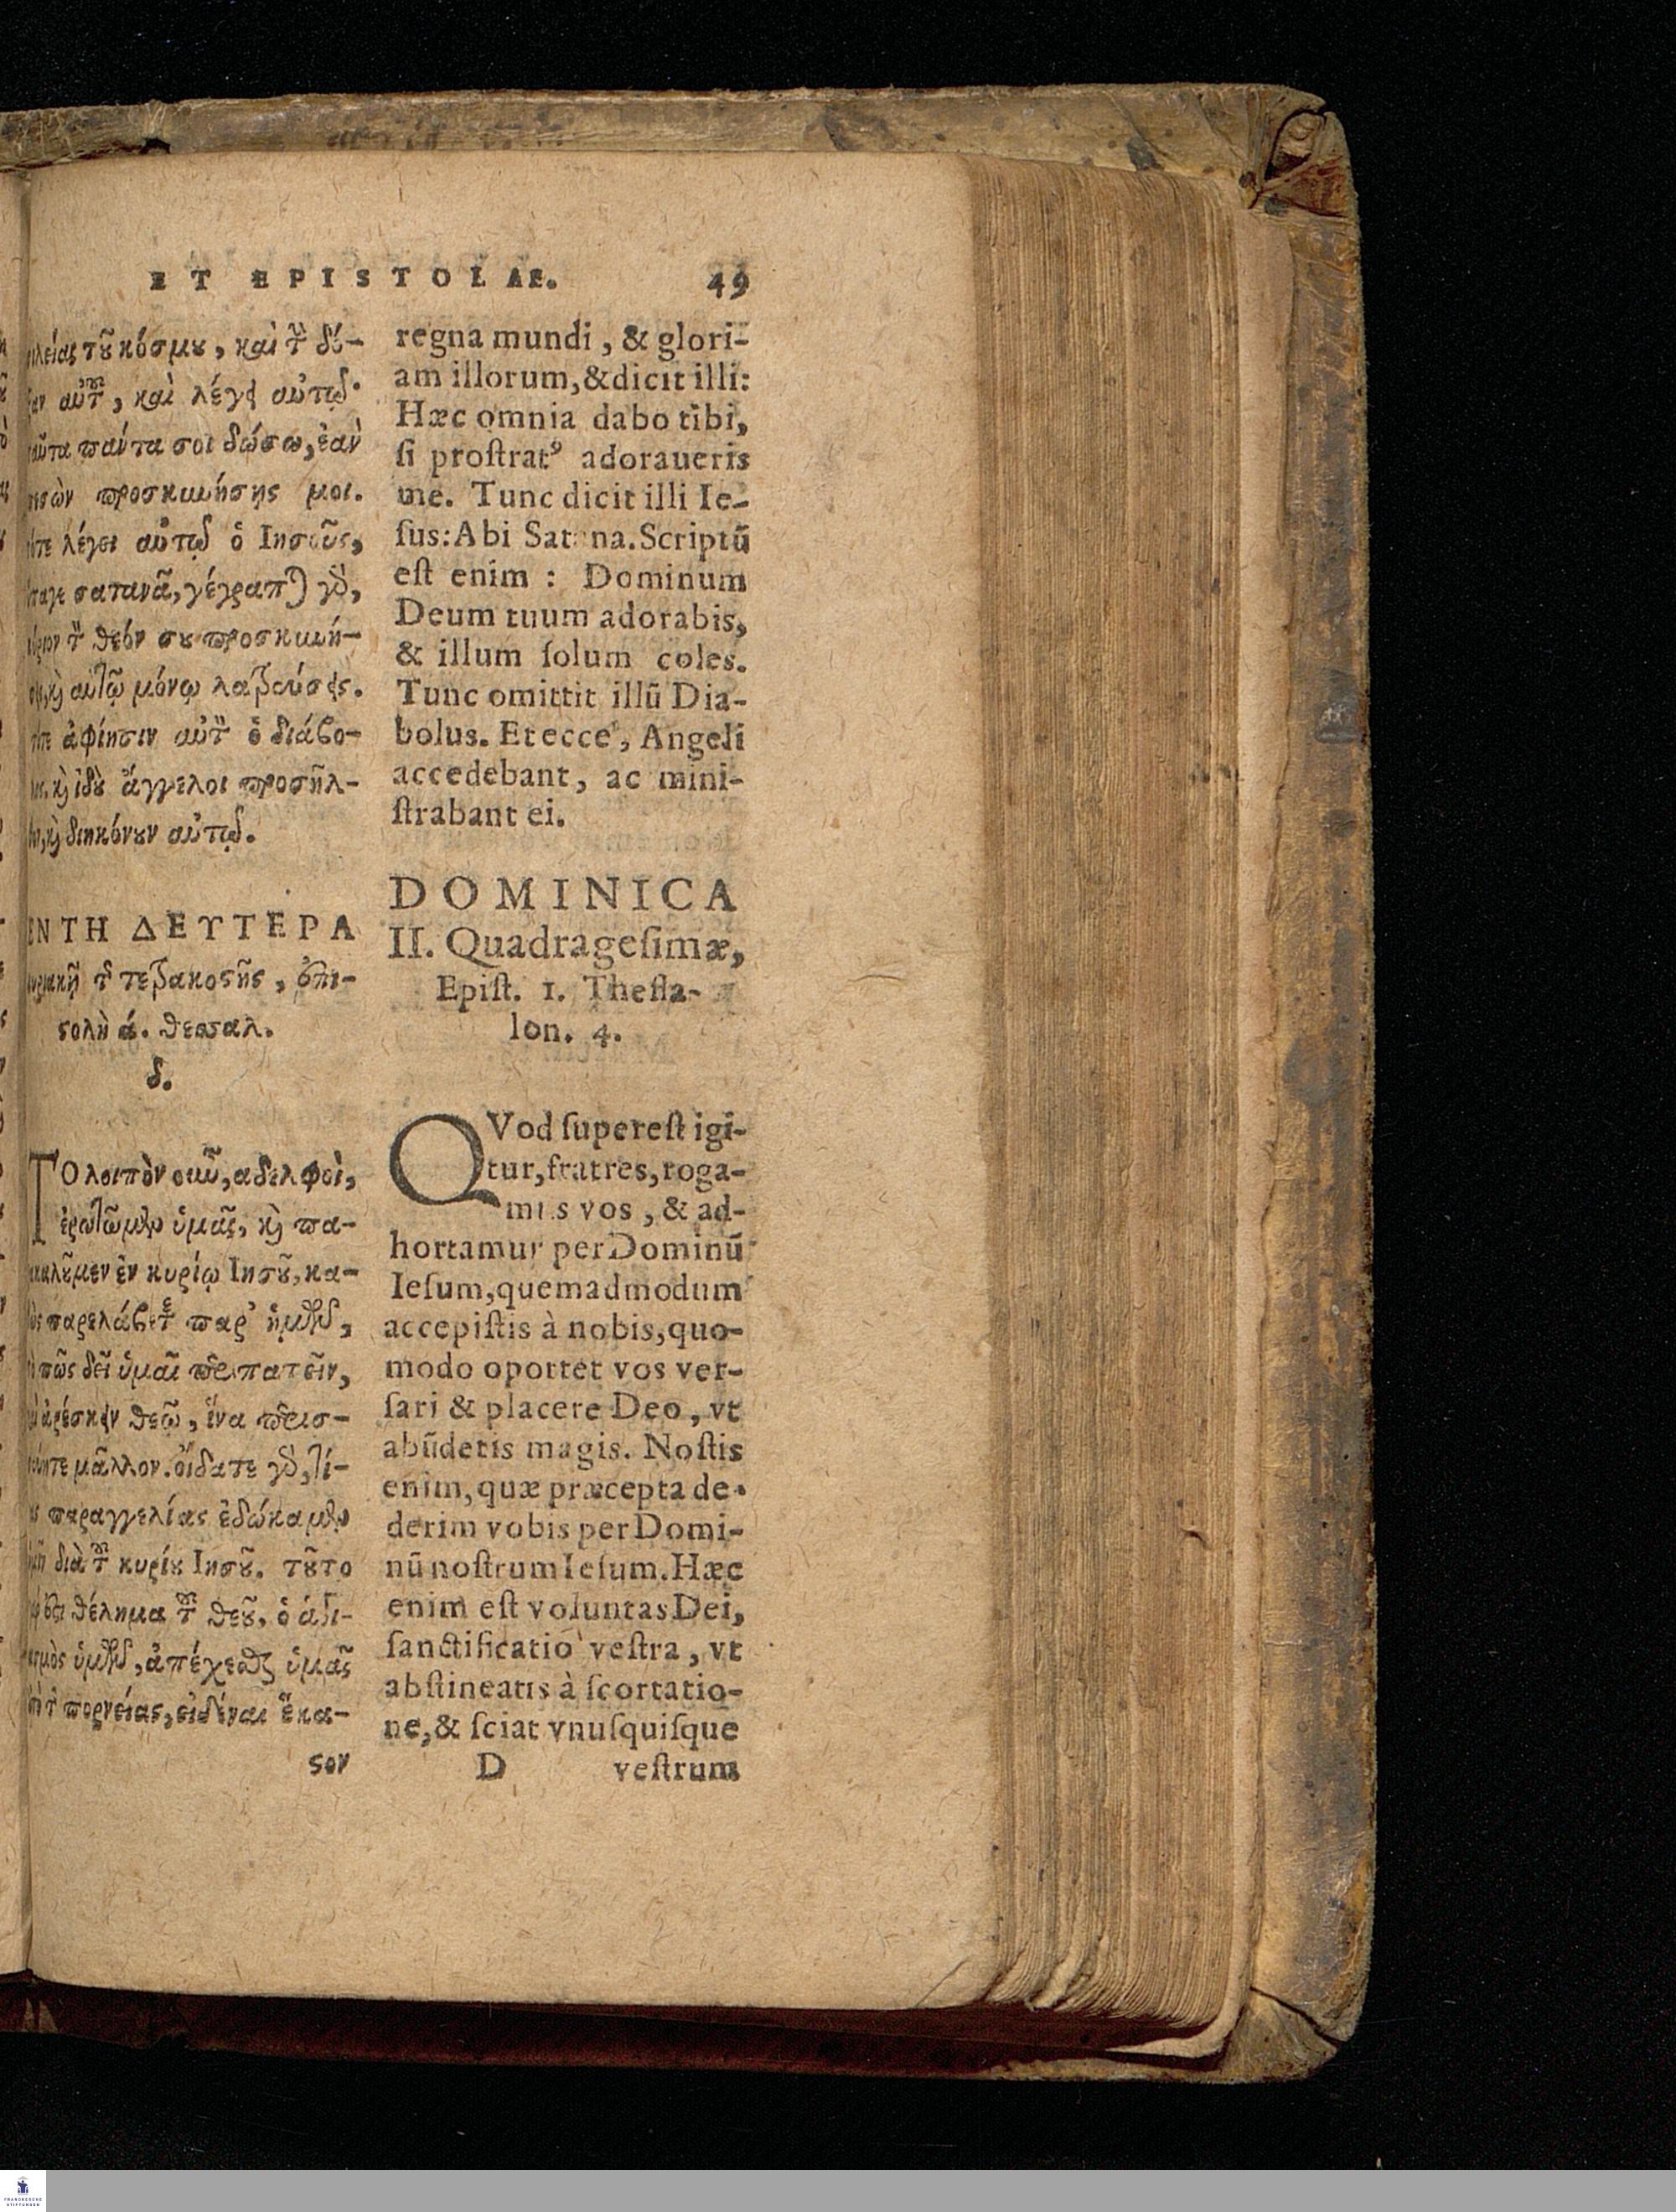 ET EPISTOLAE. 49
τȣ͂ κόσμȣ, καὶ τ̃ δό-
αὐτ̃, καὶ λέγει αὐτῷ·
πάντα σοι δώσω, ἐὰν
προσκυνήσῃς μοι.
λέγει αὐτῷ ὁ Ἰησοῦς,
σατανᾶ, γέγραπται γὸ,
τ̃ θεόν σȣ προσκυνή-
ϗ αὐτῷ μόνῳ λατρεύσεις.
ἀφίησιν αὐτ̃ ὁ διάβο-
ϗ ἰδȣ̀ ἄγγελοι προσῆλ-
ϗ διηκόνȣν αὐτῷ.
ΕΝ ΤΗ ΔΕΥΤΕΡΑ
τ̃ τεσσακοϛῆς, ἐπι-
ϛολὴ ά. θεσσαλ.
δ.
ΤΟ λοιπὸν οὖν, αδελφοὶ,
ἐρωτῶμεν ὑμᾶς, ϗ πα-
ἐν κυρίῳ Ἰησȣ͂, κα-
παρελάβετε παρ’ ἡμῶν,
πῶς δεῖ ὑμᾶς περιπατεῖν,
θεῷ, ἵνα περισ-
μᾶλλον. οἴδατε γὸ, τί-
παραγγελίας ἐδώκαμεν
διὰ τ̃ κυρίȣ Ἰησȣ͂. τȣ͂το
θέλημα τ̃ θεȣ͂, ὁ ἁγι-
ὑμῶν, ἀπέχεσθαι ὑμᾶς
τ̃ πορνείας, εἰδέναι ἕκα-
ϛον
regna mundi, & glori-
am illorum, & dicit illi:
Hæc omnia dabo tibi,
ſi proſtratꝰ adoraueris
me. Tunc dicit illi Ie-
ſus: Abi Satana. Scriptū
eſt enim : Dominum
Deum tuum adorabis,
& illum ſolum coles.
Tunc omittit illū Dia-
bolus. Et ecce, Angeli
accedebant, ac mini-
ſtrabant ei.
DOMINICA
II. Quadrageſimæ,
Epiſt. 1. Theſſa-
lon. 4.
QVod ſupereſt igi-
tur, fratres, roga-
mus vos, & ad-
hortamur per Dominū
Ieſum, quemadmodum
accepiſtis à nobis, quo-
modo oportet vos ver-
ſari & placere Deo, vt
abūdetis magis. Noſtis
enim, quæ præcepta de-
derim vobis per Domi-
nū noſtrum Ieſum. Hæc
enim eſt voluntas Dei,
ſanctificatio veſtra, vt
abſtineatis à ſcortatio-
ne, & ſciat vnuſquiſque
D veſtrum
FRANCKESCHE
STIFTUNGEN